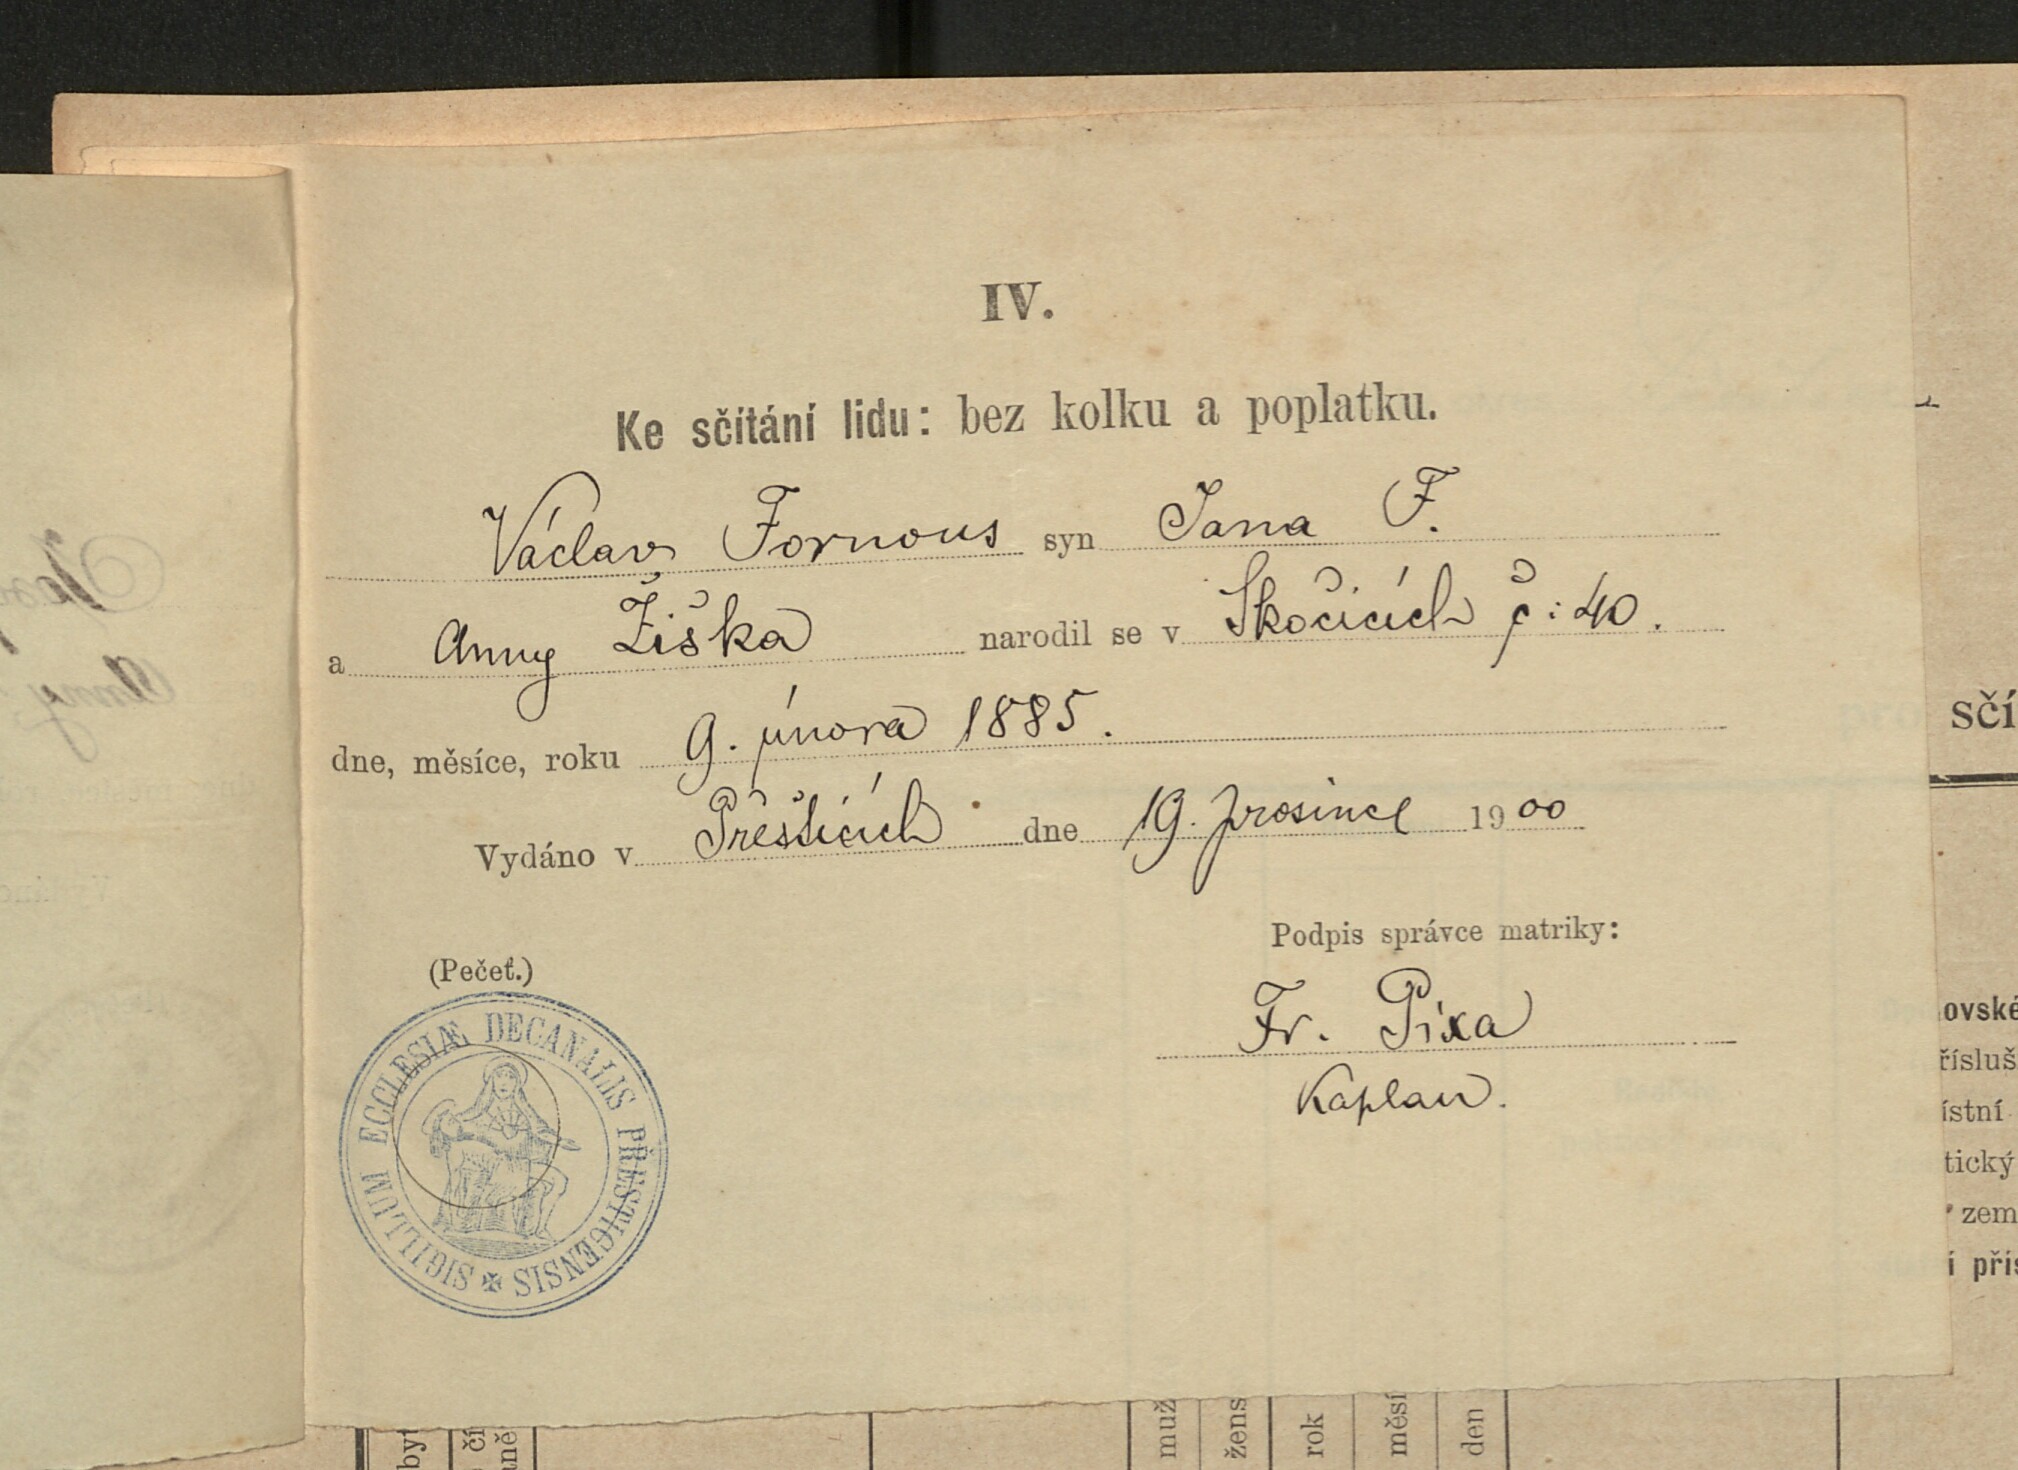 IV.
Ke sčítání lidu: bez kolku a poplatku.
Václav Fornous syn Jana F.
a Anny Žiška narodil se v Skočicích č: 40.
dne, měsíce, roku 9. února 1885.
Vydáno v Přešticích dne 19. prosince 1900
Podpis správce matriky:
(Pečeť.)
Fr. Pixa
Kaplan.
SIGILLUM ECCLESIÆ DECANALIS PŘESTICENSIS
sčí
ovské
řísluš
ístní
tický
zem
í přís
být
čí
aně
muž
žens
rok
měsí
den